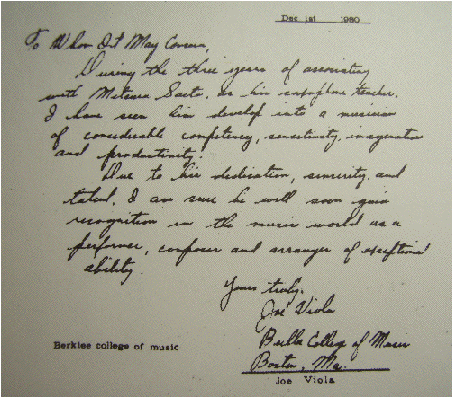 Dec 1st 1980
To Whom It May Concern,
During the three years of associating
with Mitsuru Sato, as his saxophone teacher,
I have seen him develop into a musician
of considerable competency, sensitivity, imagination
and productivity.
Due to his dedication, sincerity, and
talent, I am sure he will soon gain
recognition in the music world as a
performer, composer and arranger of exceptional
ability.
Yours truly,
Joe Viola
Berklee College of Music
Boston, Ma.
Berklee college of music
Joe Viola